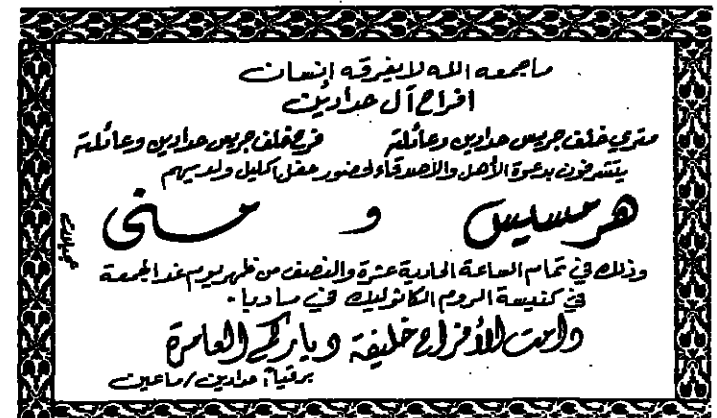 ما جمعه الله لا يفرقه إنسان
افراح آل حدادين
متري خلف جريس حدادين وعائلته فرح خلف جريس حدادين وعائلته
يتشرفون بدعوة الأهل والأصدقاء لحضور حفل اكليل ولديهم
هرمسيس و منى
وذلك في تمام الساعة الحادية عشرة والنصف من ظهر يوم غد الجمعة
في كنيسة الروم الكاثوليك في مادبا .
دامت الأفراح حليفة دياركم العامرة
برقياً: حدادين / ماعين